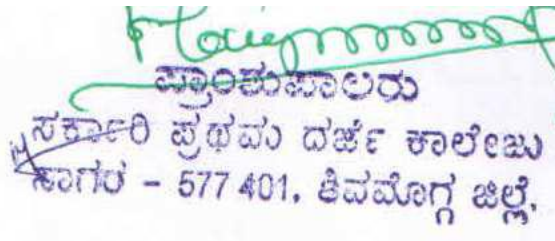 ಪ್ರಾಂಶುಪಾಲರು
ಸರ್ಕಾರಿ ಪ್ರಥಮ ದರ್ಜೆ ಕಾಲೇಜು
ಸಾಗರ - 577 401. ಶಿವಮೊಗ್ಗ ಜಿಲ್ಲೆ.